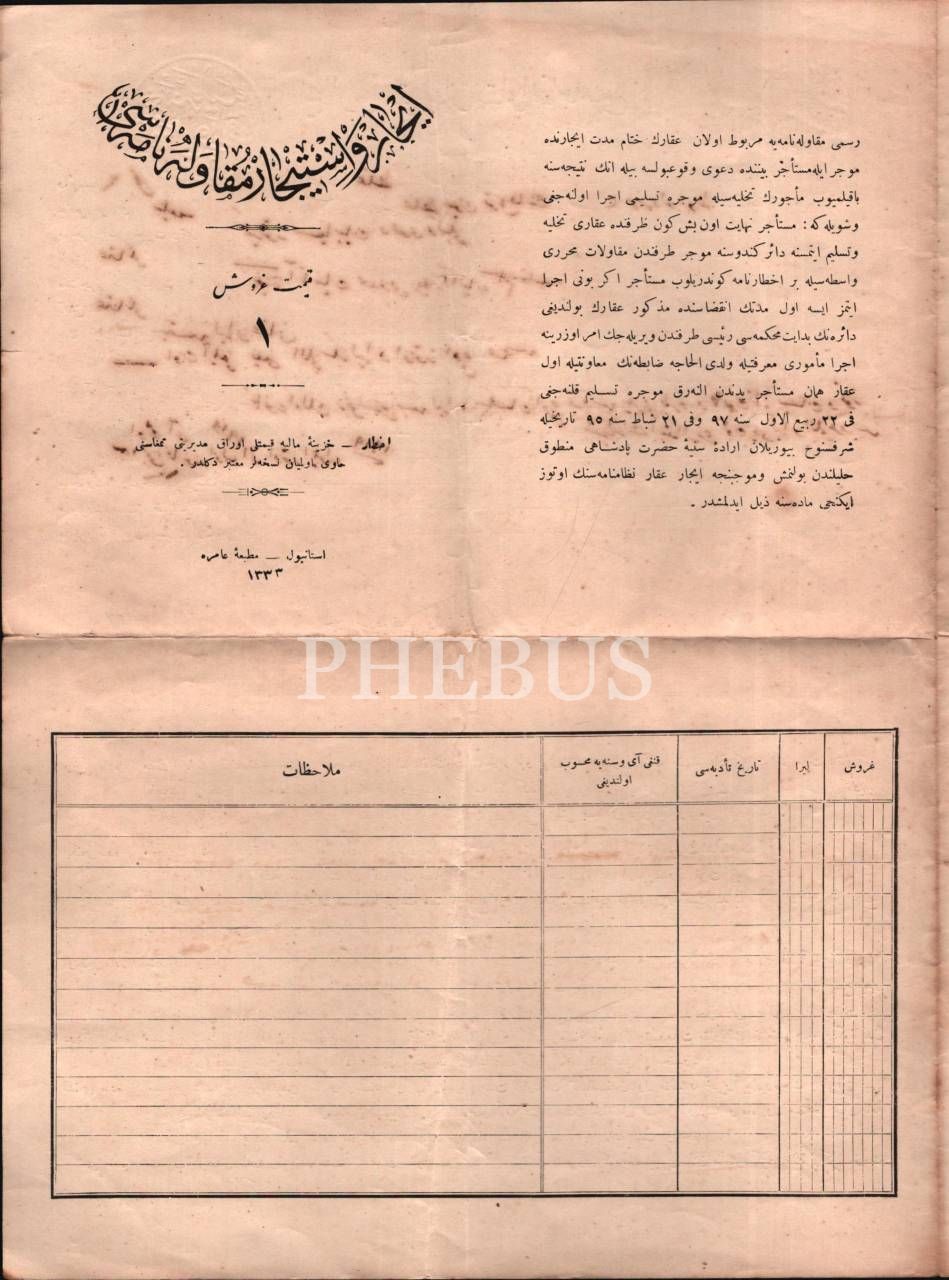 ایجار و استیجار مقاوله نامه سی
قیمت غروش
١
اخطار — خزینهٔ مالیه قیمتلی اوراق مدیریتی تمغاسنی
حاوی اولمیان نسخه‌لر معتبر دکلدر .
استانبول — مطبعهٔ عامره
١٣٣٣
رسمی مقاوله‌نامه‌یه مربوط اولان عقارك ختام مدت ایجارنده
موجر ایله مستأجر بیننده دعوی وقوعبولسه بیله انك نتیجه‌سنه
باقیلمیوب مأجورك تخلیه‌سیله موجره تسلیمی اجرا اولنه‌جغی
وشویله‌که : مستأجر نهایت اون بش کون ظرفنده عقاری تخلیه
وتسلیم ایتمسنه دائر کندوسنه موجر طرفندن مقاولات محرری
واسطه‌سیله بر اخطارنامه کوندریلوب مستأجر اکر بونی اجرا
ایتمز ایسه اول مدتك انقضاسنده مذکور عقارك بولندیغی
دائره‌نك بدایت محکمه‌سی رئیسی طرفندن ویریله‌جك امر اوزرینه
اجرا مأموری معرفتیله ولدی الحاجه ضابطه‌نك معاونتیله اول
عقار همان مستأجر یدندن النه‌رق موجره تسلیم قلنه‌جغی
فی ٢٢ ربیع الاول سنه ٩٧ وفی ٢١ شباط سنه ٩٥ تاریخیله
شرفسنوح بیوریلان ارادهٔ سنیهٔ حضرت پادشاهی منطوق
جلیلندن بولنمش وموجبنجه ایجار عقار نظامنامه‌سنك اوتوز
ایکنجی ماده‌سنه ذیل ایدلمشدر .
PHEBUS
غروش
لیرا
تاریخ تأدیه‌سی
قنغی آی وسنه‌یه محسوب
اولندیغی
ملاحظات